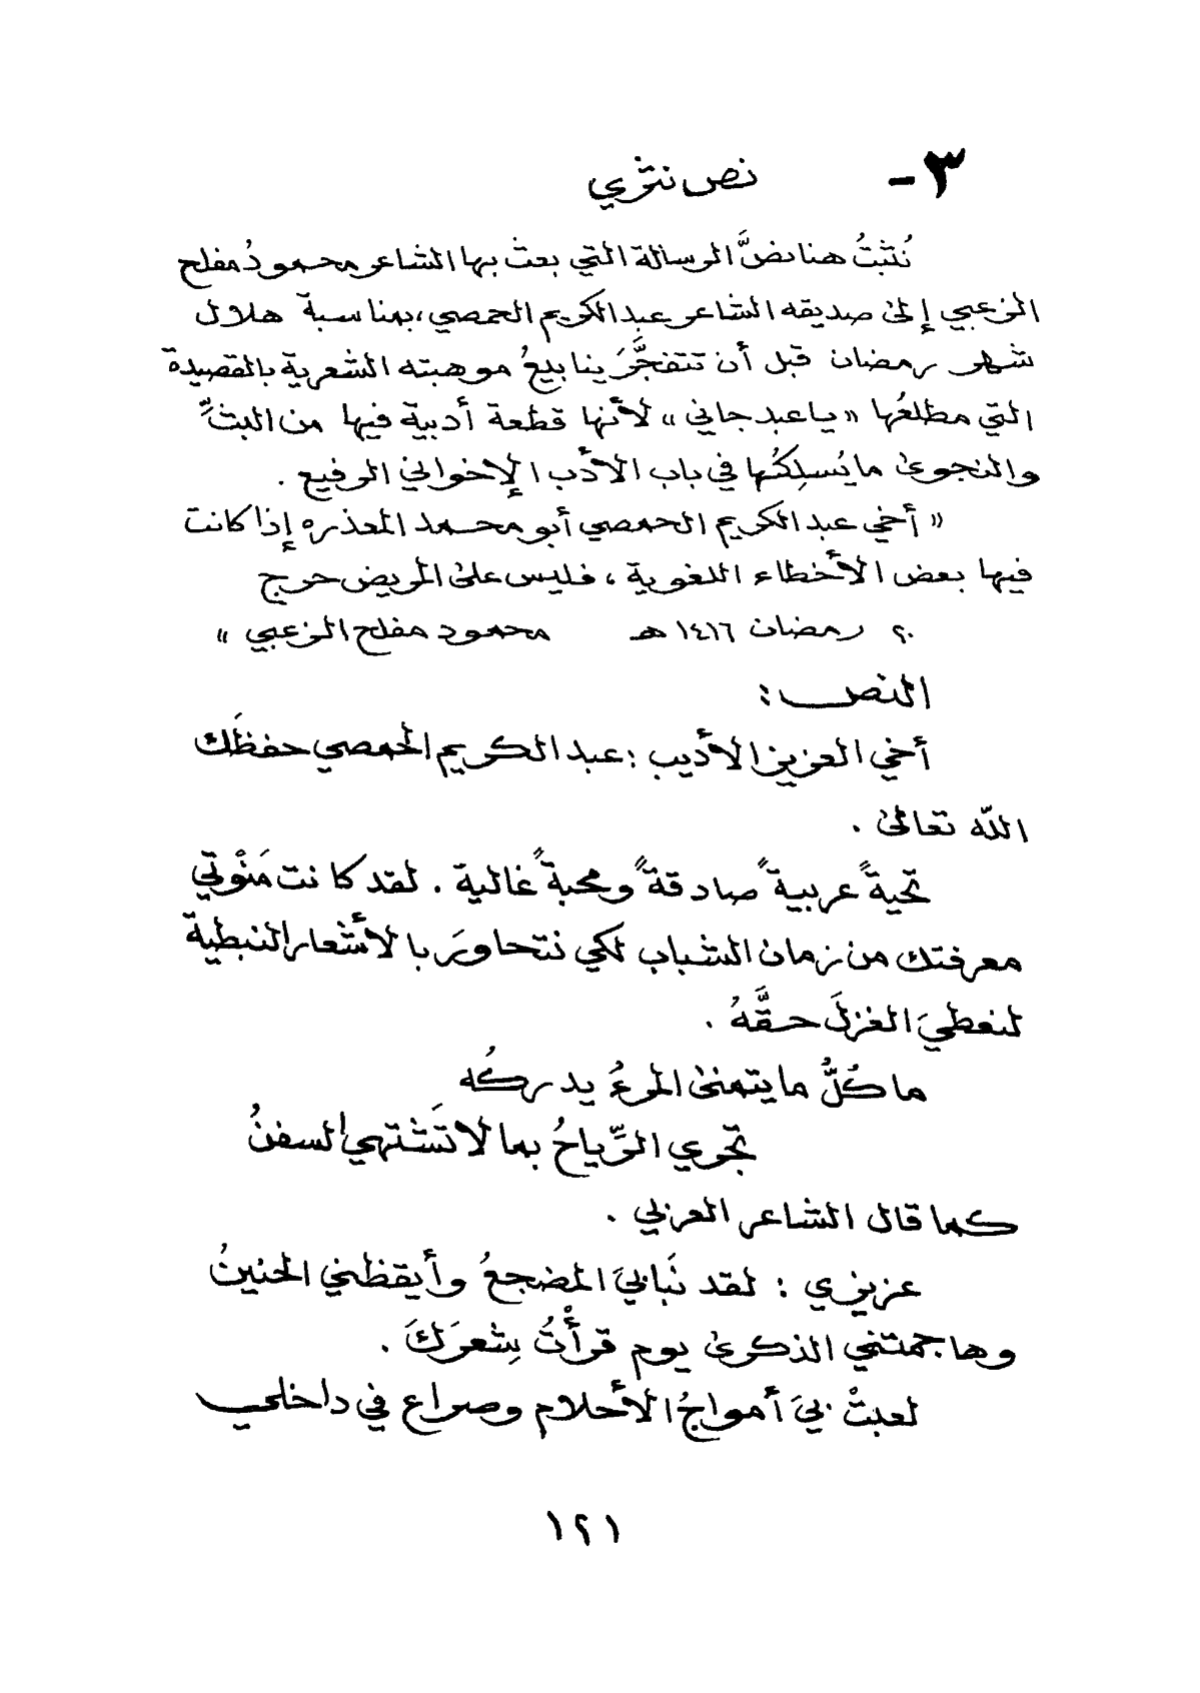 ٣- نص نثري
نُثبتُ هنا نصَّ الرسالة التي بعث بها الشاعر محمودُ مفلح
الزعبي إلى صديقه الشاعر عبدالكريم الحمصي، بمناسبة هلال
شهر رمضان قبل أن تتفجَّرَ ينابيعُ موهبته الشعرية بالقصيدة
التي مطلعُها « يا عبد جاني » لأنها قطعة أدبية فيها من البثِّ
والنجوى ما يُسلِكُها في باب الأدب الإخواني الرفيع .
« أخي عبد الكريم الحمصي أبو محمد المعذره إذا كانت
فيها بعض الأخطاء اللغوية ، فليس على المريض حرج
٢٠ رمضان ١٤١٦ هـ محمود مفلح الزعبي »
النص :
أخي العزيز الأديب : عبد الكريم الحمصي حفظَك
الله تعالى .
تحيةً عربيةً صادقةً ومحبةً غالية . لقد كانت مَنْوتي
معرفتك من زمان الشباب لكي نتحاورَ بالأشعار النبطية
لنعطيَ الغزلَ حقَّهُ .
ما كُلُّ ما يتمنى المرءُ يدركُه
تجري الرِّياحُ بما لا تَشتهي السفنُ
كما قال الشاعر العربي .
عزيزي : لقد نَبا بيَ المضجعُ وأيقظني الحنينُ
وهاجمتني الذكرى يوم قرأْتُ شِعرَكَ .
لعبتْ بيَ أمواجُ الأحلام وصراع في داخلي
١٢١